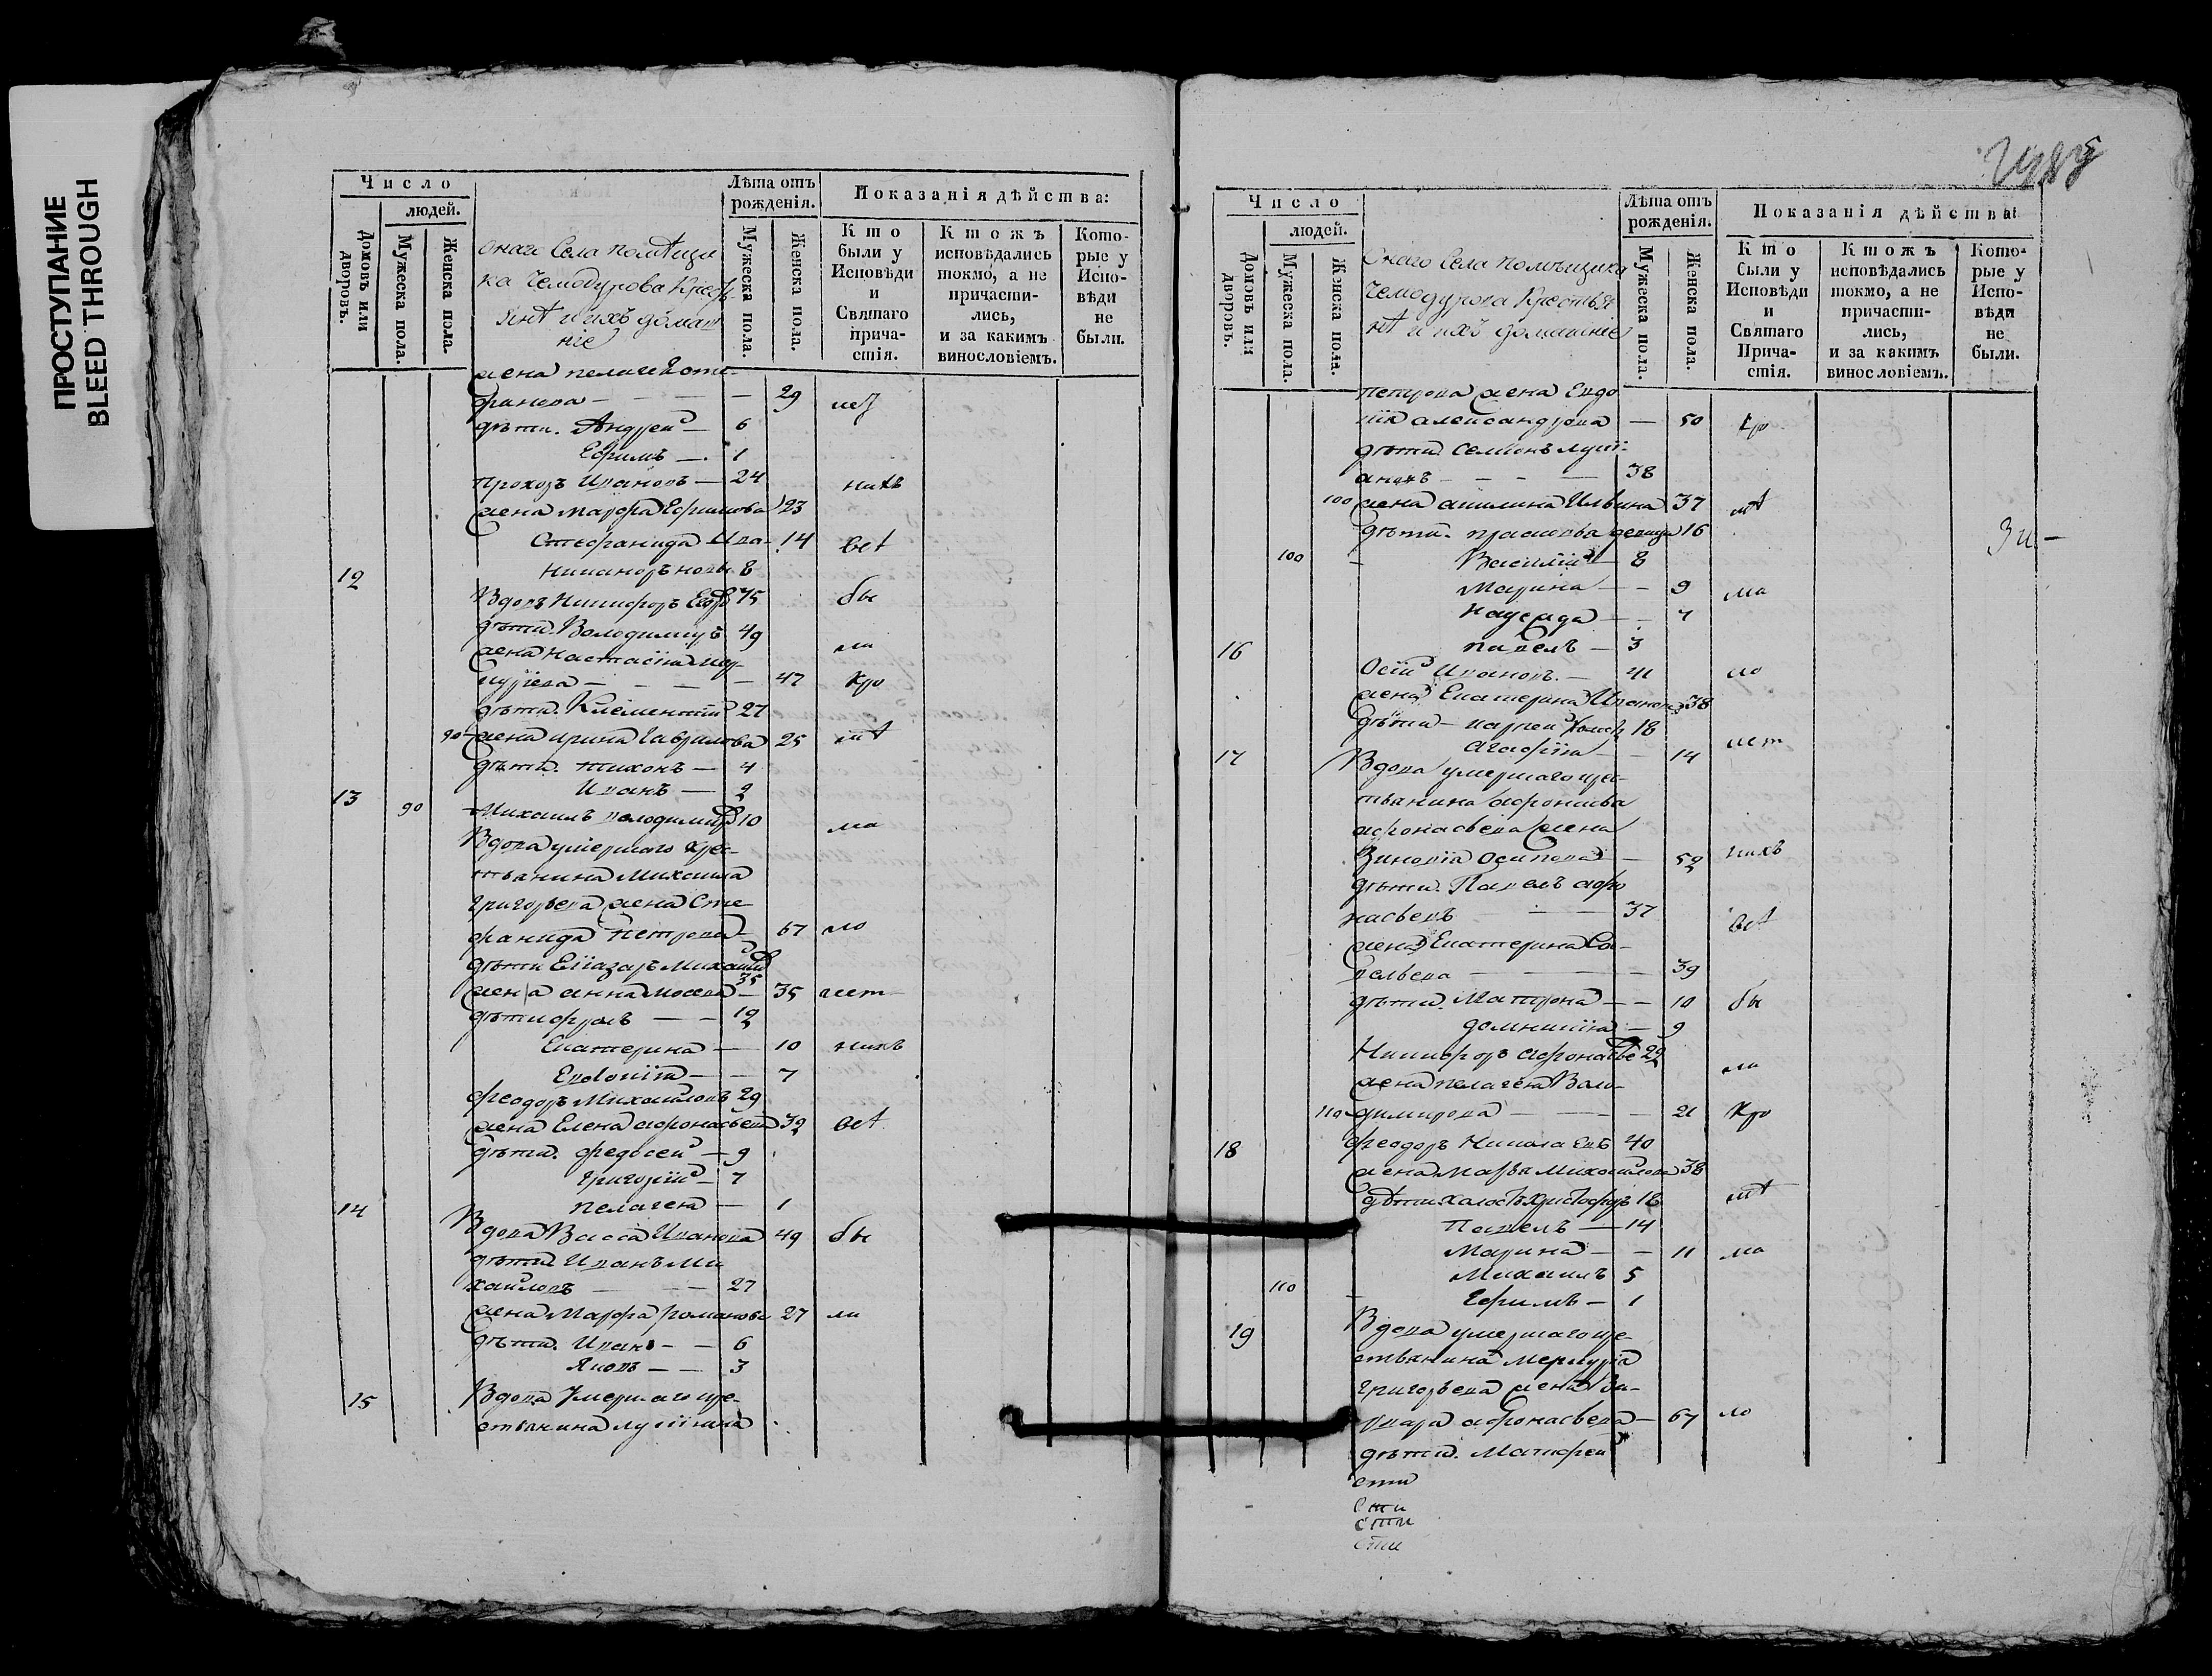 ПРОСТУПАНИЕ
BLEED THROUGH
Число
людей.
Домовъ или дворовъ.
Мужеска пола.
Женска пола.
онаго Села помѣщи
ка Чемодурова Кресть
янѣ и ихъ домаш
ніе
Лѣта отъ рожденія.
Мужеска пола.
Женска пола.
Показанія дѣйства:
Кто были у Исповѣди и Святаго причастія.
Ктожъ исповѣдались токмо, а не причастились, и за какимъ винословіемъ.
Которые у Исповѣди не были.
жена пелагея
29
дѣти. Андрей — 6
Ефимъ — 1
прохоръ Ивановъ — 24 нихъ
жена марфа Ефимова 23
Стефанида Ива- 14 всѣ
8
12
Вдовъ Никифоръ 75 бы
дѣти. Володимиръ 49
жена настасія ли
— 47 Кро
дѣти. Климентій 27
90 жена ирина Гаврилова 25 мѣ
дѣти. тихонъ — 4
Иванъ — 2
13 90 Михаилъ володимир 10 ма
Вдова умершаго крес-
тьянина Михаила
григорьева жена Сте
фанида Петрова — 67 ло
дѣти Елиазаръ Михайлов 35
жена анна — 35 лет
дѣти фролъ — 12
Екатерина — 10 нихъ
Евдокия — 7
феодоръ Михайловъ 29
жена Елена афонасьева 32 всѣ
дѣти. федосей — 9
григорій — 7
пелагея — 1
14
Вдова Васса Иванова 49 бы
дѣти Иванъ Ми
хайловъ — 27
жена Марфа романова 27 ли
дѣти. Иванъ — 6
Яковъ — 3
15 Вдова умершаго кре-
стьянина лукиіана
Число
людей.
Домовъ или дворовъ.
Мужеска пола.
Женска пола.
Онаго Села помѣщика
Чемодурова Крестья
нѣ и ихъ домашніе
Лѣта отъ рожденія.
Мужеска пола.
Женска пола.
Показанія дѣйства:
Кто были у Исповѣди и Святаго Причастія.
Ктожъ исповѣдались токмо, а не причастились, и за какимъ винословіемъ.
Которые у Исповѣди не были.
петрова жена Евдо
кія александрова — 50 кро
дѣти Семионъ лукі-
ановъ — 38
100 жена акилина Ильина 37 мѣ
дѣти. прасковья девица 16
100 Василій — 8
Марина — 9 ма
надежда — 7
16 павелъ — 3
Осипъ Ивановъ. — 41 ло
жена Екатерина Иванова 38
дѣти — холост 18
агафіа — 14 лет
17 Вдова умершаго крес-
тьянина афонасья
афонасьева жена
Зиновіа Осипова — 52 нихъ
дѣти. Павелъ афо
насьевъ — 37 всѣ
жена Екатерина Са-
вельева — 39
дѣти. Матрона — 10 бы
домникіа — 9
Никифоръ афонасье 22 ли
жена пелагея Воло-
110 димирова — 21 Кро
18 феодоръ Николаевъ 40
жена марья Михайлова 38
дѣти холостъ Христофоръ 18 мѣ
Павелъ — 14
Марина — 11 ма
Михаилъ 5
110 Ефимъ — 1
19 Вдова умершаго кре-
стьянина меркурія
григорьева жена Ва-
рвара афонасьева — 67 ло
дѣти. Матфей
сти
сти
сти
сти